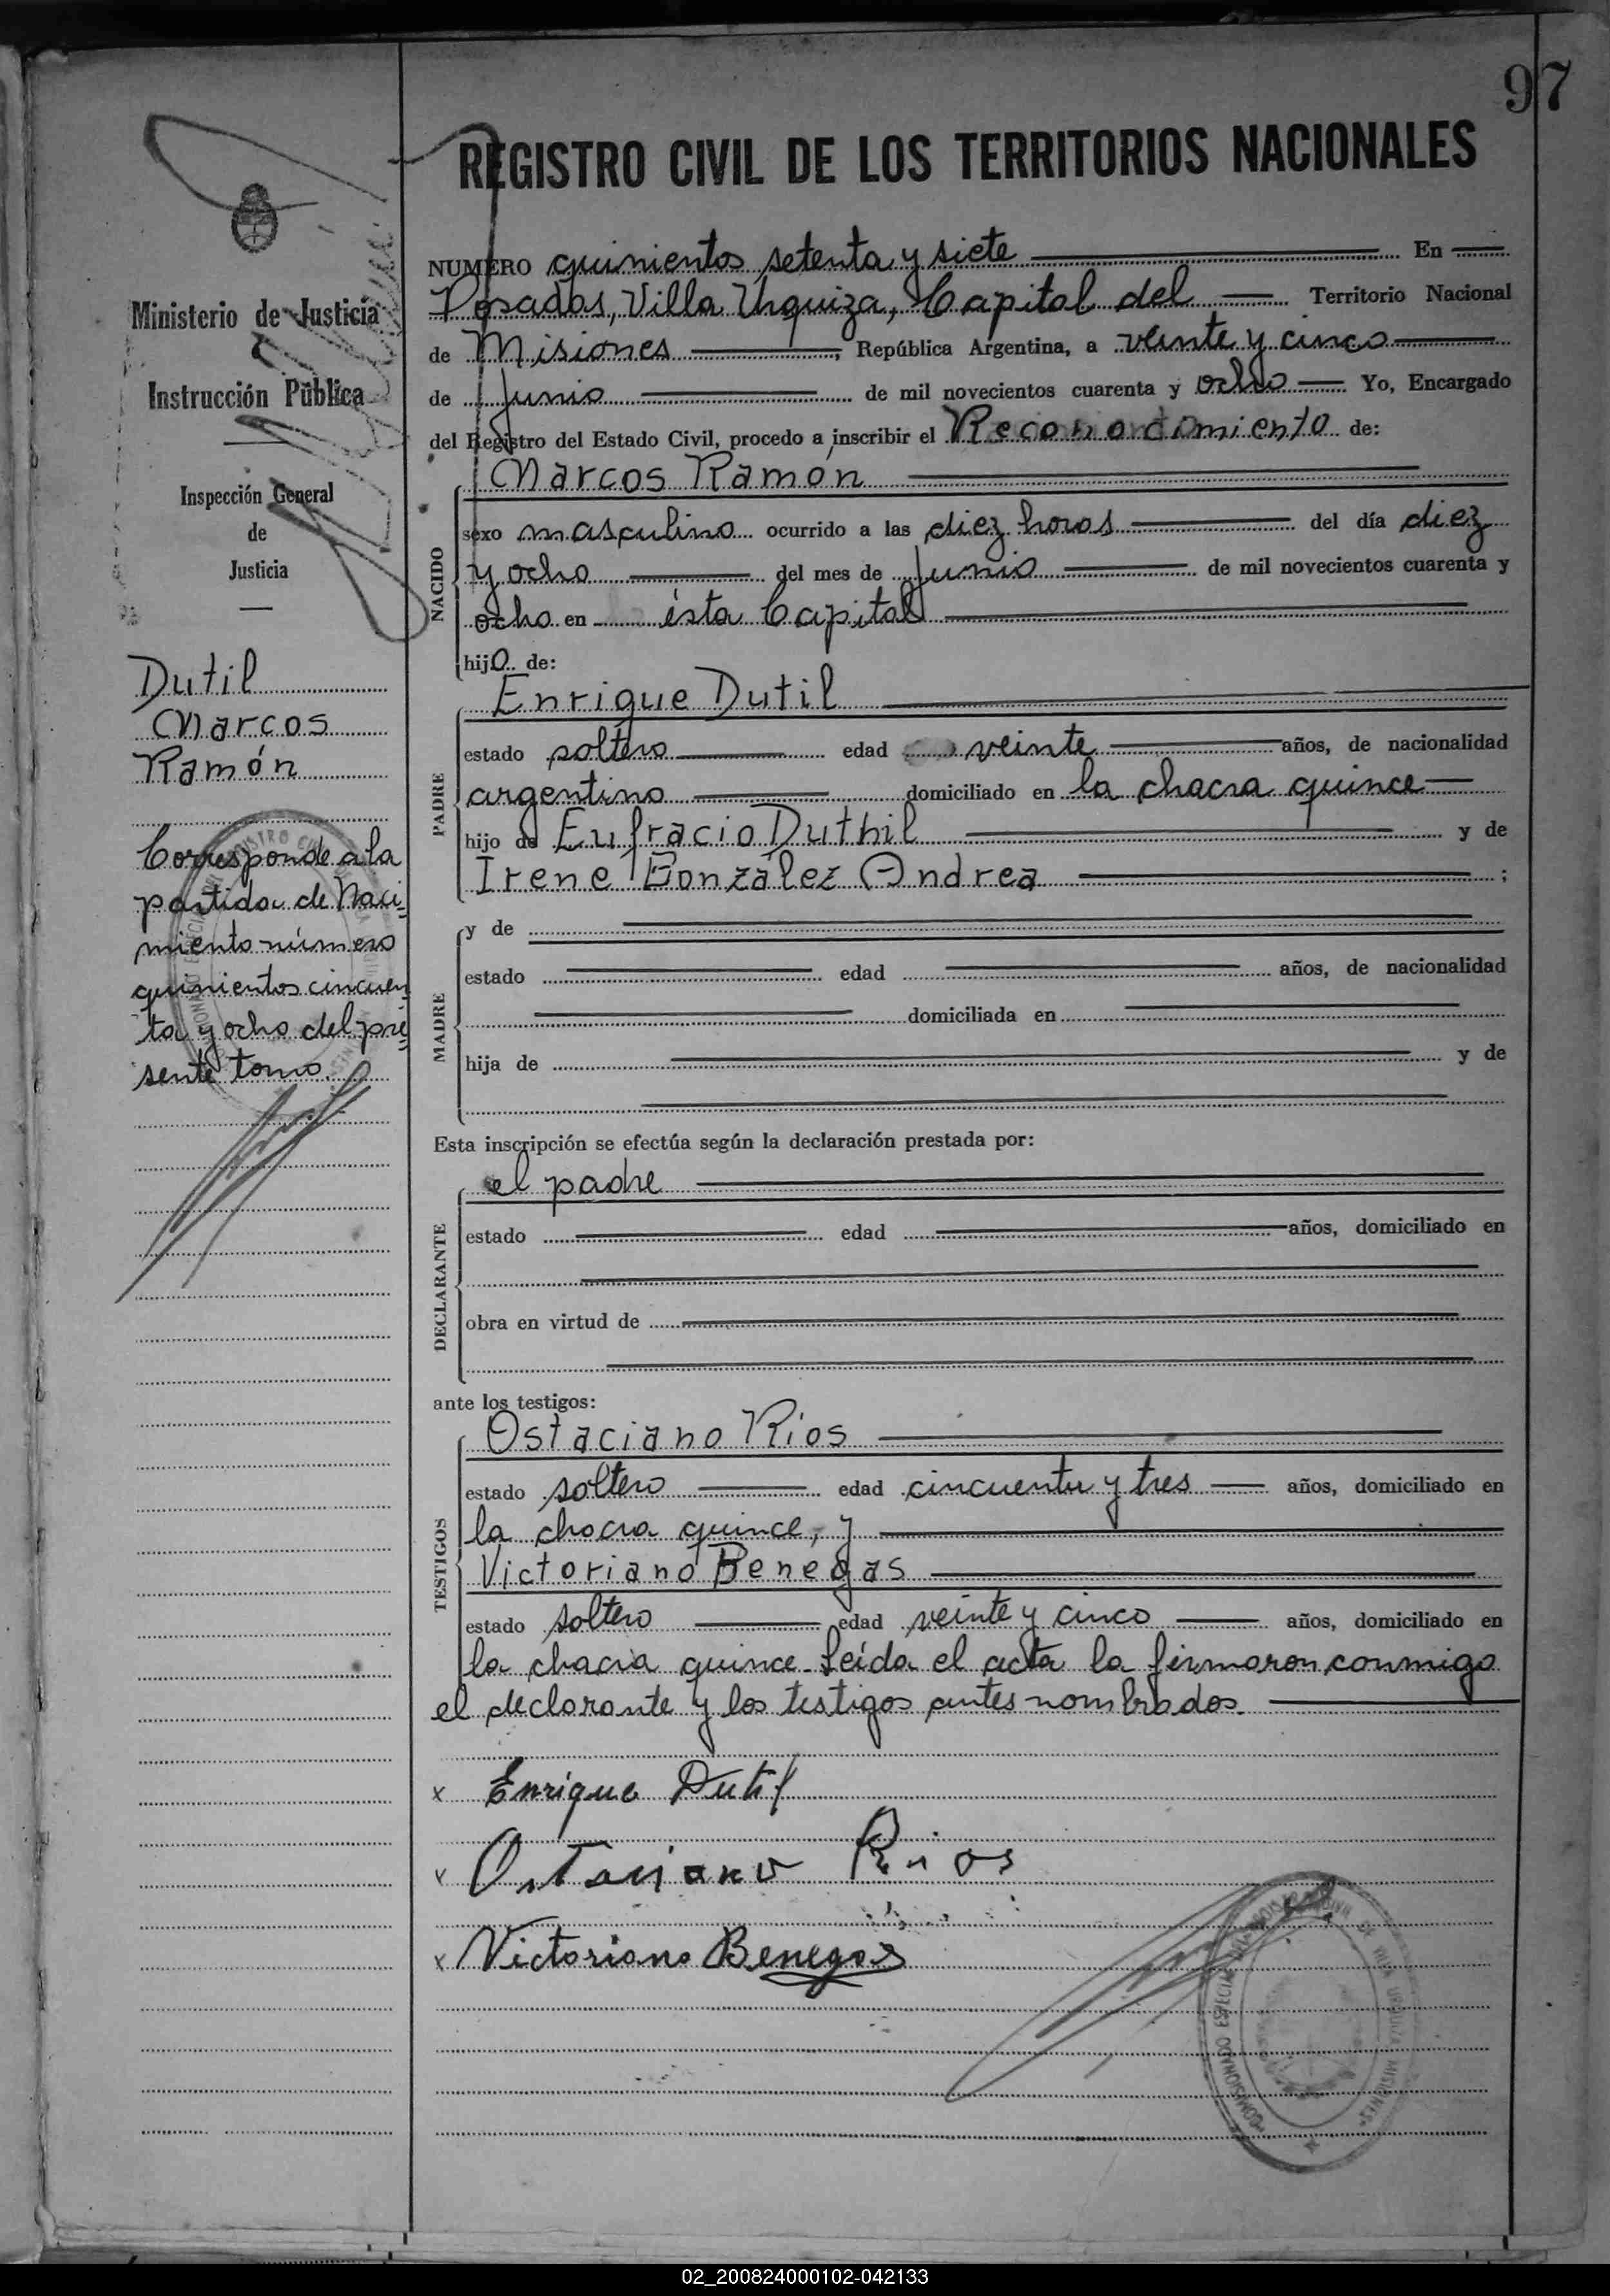 97
REGISTRO CIVIL DE LOS TERRITORIOS NACIONALES
Ministerio de Justicia
Instrucción Pública
Inspección General
de
Justicia
Dutil
Marcos
Ramón
Corresponde a la
partida de Naci=
miento número
quinientos cincuen
ta y ocho del pre=
sente tomo.
NUMERO quinientos setenta y siete En
Posadas, Villa Urquiza, Capital del Territorio Nacional
de Misiones, República Argentina, a veinte y cinco
de Junio de mil novecientos cuarenta y ocho Yo, Encargado
del Registro del Estado Civil, procedo a inscribir el Reconocimiento de:
Marcos Ramon
NACIDO
sexo masculino ocurrido a las diez horas del día diez
y ocho del mes de Junio de mil novecientos cuarenta y
ocho en ésta Capital
hijo de:
Enrique Dutil
PADRE
estado soltero edad veinte años, de nacionalidad
argentino domiciliado en la chacra quince
hijo de Eufracio Duthil y de
Irene González Andrea ;
MADRE
y de
estado edad años, de nacionalidad
domiciliada en
hija de y de
Esta inscripción se efectúa según la declaración prestada por:
el padre
DECLARANTE
estado edad años, domiciliado en
obra en virtud de
ante los testigos:
Ostaciano Rios
TESTIGOS
estado soltero edad cincuenta y tres años, domiciliado en
la chacra quince, y
Victoriano Benegas
estado soltero edad veinte y cinco años, domiciliado en
la chacra quince. Leída el acta la firmaron conmigo
el declarante y los testigos antes nombrados.
x Enrique Dutil
x Ostaciano Rios
x Victoriano Benegas
02_200824000102-042133